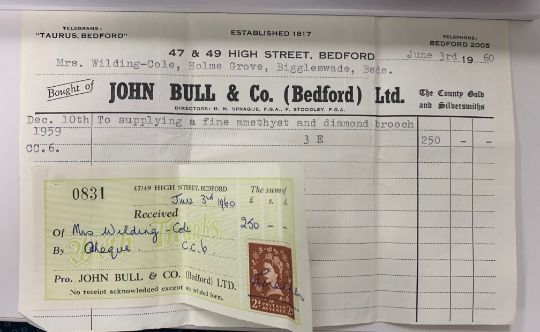 TELEGRAMS:
"TAURUS, BEDFORD"
ESTABLISHED 1817
TELEPHONE:
BEDFORD 2005
47 & 49 HIGH STREET, BEDFORD
June 3rd 1960
Mrs. Wilding-Cole, Holme Grove, Biggleswade, Beds.
Bought of JOHN BULL & Co. (Bedford) Ltd. The County Gold and Silversmiths
DIRECTORS: H. N. SPRAGUE, F.G.A., F. STOODLEY, F.G.A.
Dec. 10th To supplying a fine amethyst and diamond brooch
1959 3 E 250 - -
CC.6.
0831 47/49 HIGH STREET, BEDFORD The sum of
June 3rd 1960 £ s. d.
Received
Of Mrs Wilding-Cole 250 - -
By Cheque CC.6
With Thanks
Pro. JOHN BULL & CO. (Bedford) LTD.
No receipt acknowledged except on printed form.
POSTAGE REVENUE
2D 2D